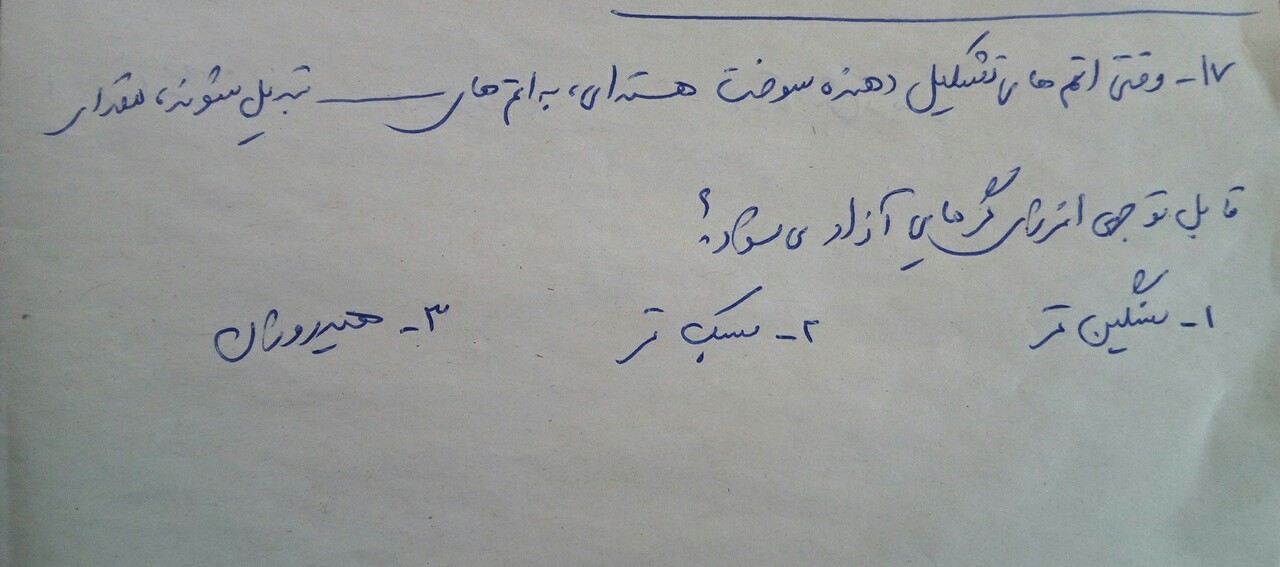 ۱۷- وقتی اتم های تشکیل دهنده سوخت هسته ای، به اتم های ــــــ تبدیل شوند، مقدار
قابل توجهی انرژی گرمایی آزاد می شود؟
۱- سنگین تر ۲- سبک تر ۳- هیدروژن